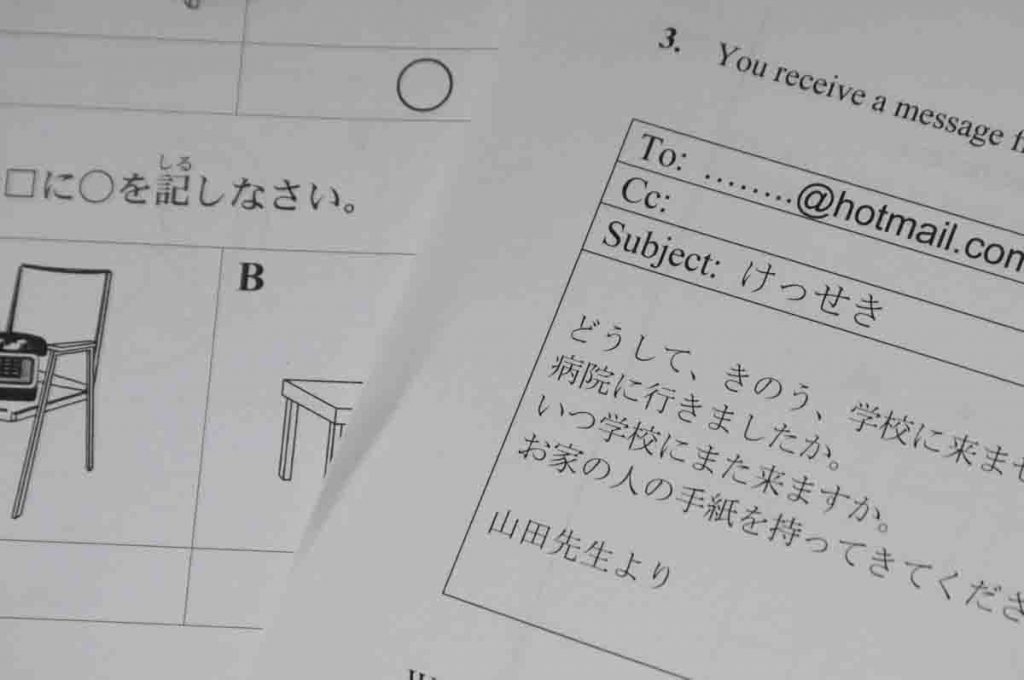 □に○を記しなさい。
しる
B
3. You receive a message
To: ........@hotmail.com
Cc:
Subject: けっせき
どうして、きのう、学校に来ませ
病院に行きましたか。
いつ学校にまた来ますか。
お家の人の手紙を持ってきてくださ
山田先生より